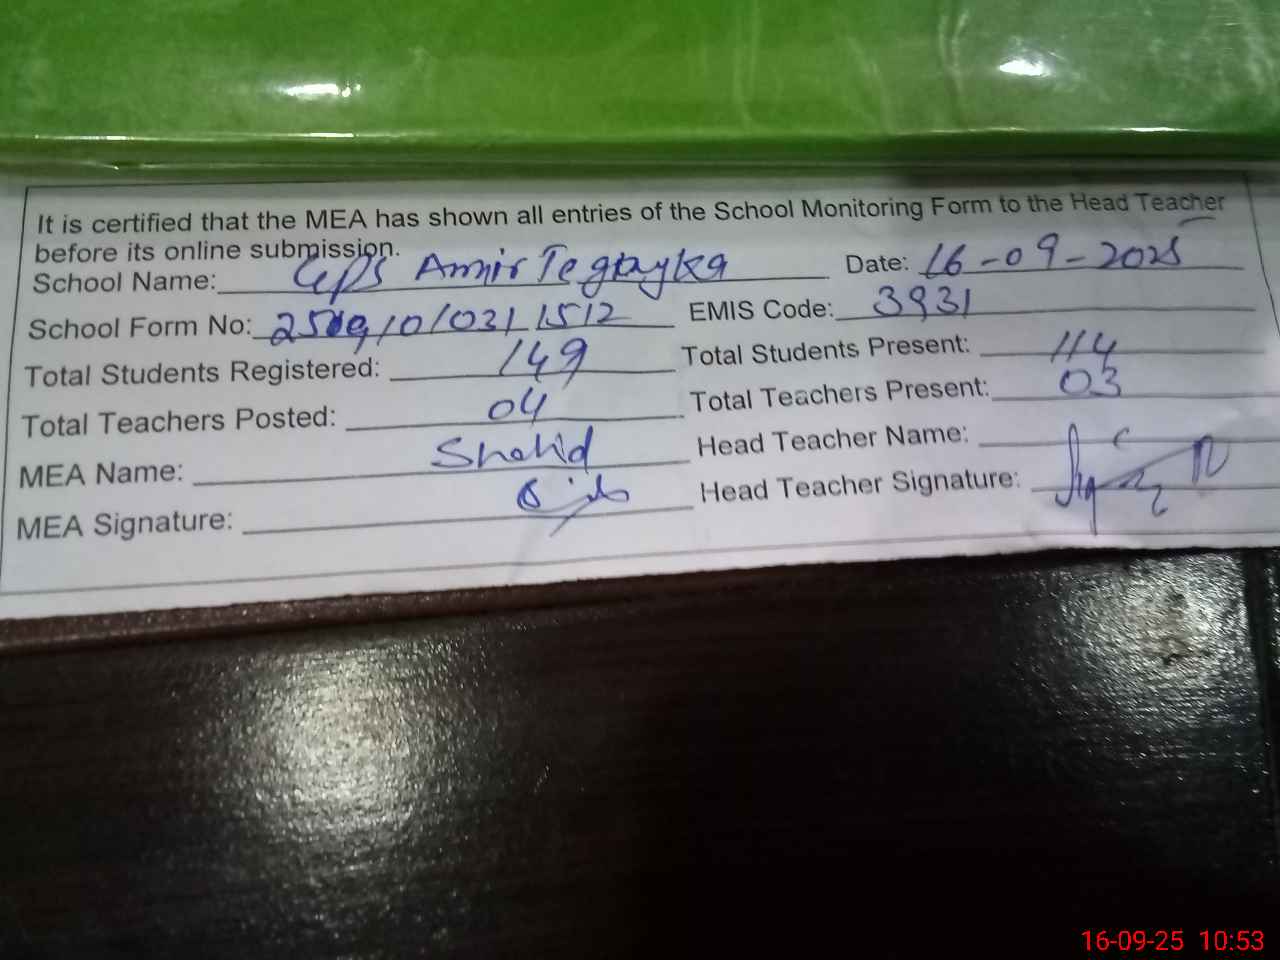 It is certified that the MEA has shown all entries of the School Monitoring Form to the Head Teacher
before its online submission.
School Name: GPS Amir Date: 16-09-2025
School Form No: EMIS Code: 3931
Total Students Registered: 149 Total Students Present: 114
Total Teachers Posted: 04 Total Teachers Present: 03
MEA Name: Shahid Head Teacher Name:
MEA Signature: Head Teacher Signature:
16-09-25 10:53